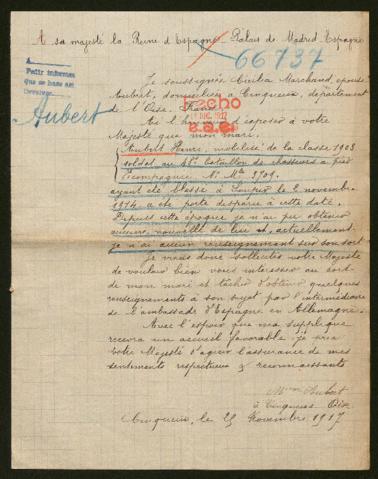 A sa majesté la Reine d'Espagne - Palais de Madrid, Espagne
66737
A
Pedir informes
que se haga en
Aubert
Je soussignée Cécilia Marchand, épouse
Aubert, domiciliée à Cinqueux, département
de l'Oise, France
Ai l'honneur d'exposer à votre
Majesté que mon mari,
hecho
DIC. 1917
Aubert Henri, mobilisé de la classe 1903
soldat au 48e bataillon de chasseurs à pied
compagnie Nº Mle 3709.
ayant été blessé à Soupir le 2 novembre
1914 a été porté disparu à cette date.
Depuis cette époque je n'ai pu obtenir
aucune nouvelle de lui et, actuellement
je n'ai aucun renseignement sur son sort
Je viens donc solliciter votre Majesté
de vouloir bien vous intéresser au sort
de mon mari et tâcher d'obtenir quelques
renseignements à son sujet par l'intermédiaire
de l'ambassade d'Espagne en Allemagne.
Avec l'espoir que ma supplique
recevra un accueil favorable je prie
Votre Majesté d'agréer l'assurance de mes
sentiments respectueux & reconnaissants
Mme Aubert
à Cinqueux Oise
Cinqueux, le 25 Novembre 1917